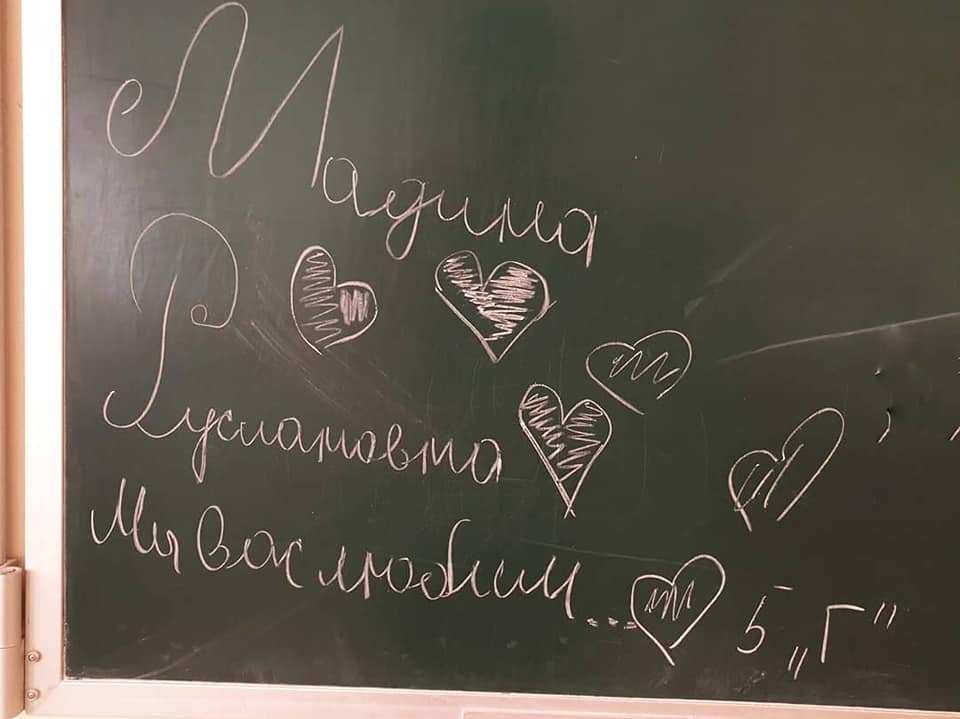 Мадина
Руслановна
Мы Вас любим...
5 „Г”